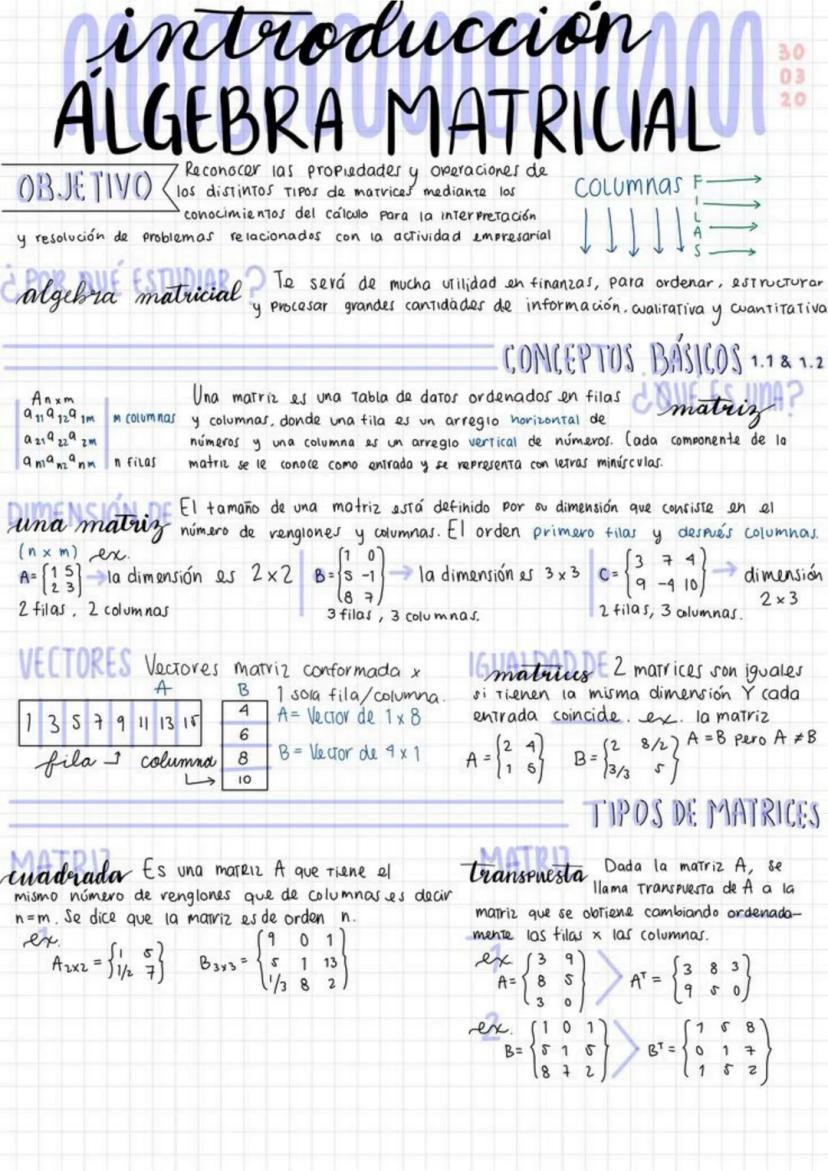 introducción
ÁLGEBRA MATRICIAL
30
03
20
OBJETIVO
Reconocer las propiedades y operaciones de
los distintos tipos de matrices mediante los
conocimientos del cálculo para la interpretación
y resolución de problemas relacionados con la actividad empresarial
COLUMNAS
FILAS
¿POR QUÉ ESTUDIAR?
algebra matricial
Te será de mucha utilidad en finanzas, para ordenar, estructurar
y procesar grandes cantidades de información, cualitativa y cuantitativa
CONCEPTOS BÁSICOS 1.1 & 1.2
¿QUE ES UNA?
matriz
Anxm
a11 a12 a1m m columnas
a21 a22 a2m
am1 an2 anm n filas
Una matriz es una tabla de datos ordenados en filas
y columnas, donde una fila es un arreglo horizontal de
números y una columna es un arreglo vertical de números. Cada componente de la
matriz se le conoce como entrada y se representa con letras minúsculas.
DIMENSIÓN DE
una matriz
El tamaño de una matriz está definido por su dimensión que consiste en el
número de renglones y columnas. El orden primero filas y después columnas.
(n x m) ex.
A= {1 5
2 3} → la dimensión es 2x2
2 filas, 2 columnas
B= {1 0
5 -1
8 7} → la dimensión es 3x3
3 filas, 3 columnas.
C= {3 7 4
9 -4 10} → dimensión
2x3
2 filas, 3 columnas.
VECTORES
Vectores matriz conformada x
1 sola fila/columna.
A
1 3 5 7 9 11 13 15
fila
columna
B
4
6
8
10
A= Vector de 1x8
B= Vector de 4x1
IGUALDAD DE
matrices
2 matrices son iguales
si tienen la misma dimensión Y cada
entrada coincide. ex. la matriz
A = {2 4
1 5}
B= {2 8/2
3/3 5}
A=B pero A≠B
TIPOS DE MATRICES
MATRIZ
cuadrada
Es una matriz A que tiene el
mismo número de renglones que de columnas es decir
n=m. Se dice que la matriz es de orden n.
ex.
A2x2 = {1 5
1/2 7}
B3x3 = {9 0 1
5 1 13
1/3 8 2}
MATRIZ
transpuesta
Dada la matriz A, se
llama transpuesta de A a la
matriz que se obtiene cambiando ordenada-
mente las filas x las columnas.
1
ex
A= {3 9
8 5
3 0}
Aᵀ = {3 8 3
9 5 0}
2
ex.
B= {1 0 1
5 1 5
8 7 2}
Bᵀ = {1 5 8
0 1 7
1 5 2}